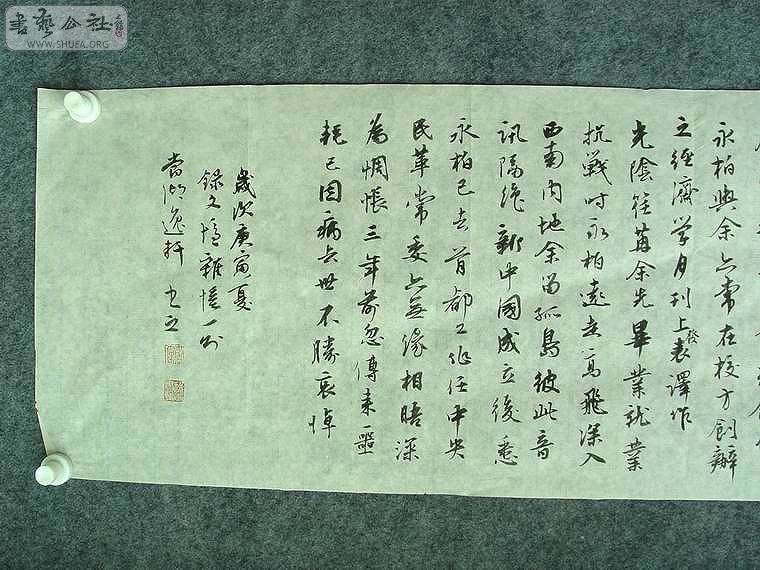 書藝公社
WWW.SHUFA.ORG
永柏與余亦常在校方創辦
之經濟學月刊上發表譯作
光陰荏苒余先畢業就業
抗戰時永柏遠走高飛深入
西南內地余留孤島彼此音
訊隔絕新中國成立後悉
永柏已去首都工作任中央
民革常委亦無緣相晤深
為惆悵三年前忽傳來噩
耗已因病去世不勝哀悼
歲次庚寅夏
錄文憶雜憶一則
當湖逸軒 書